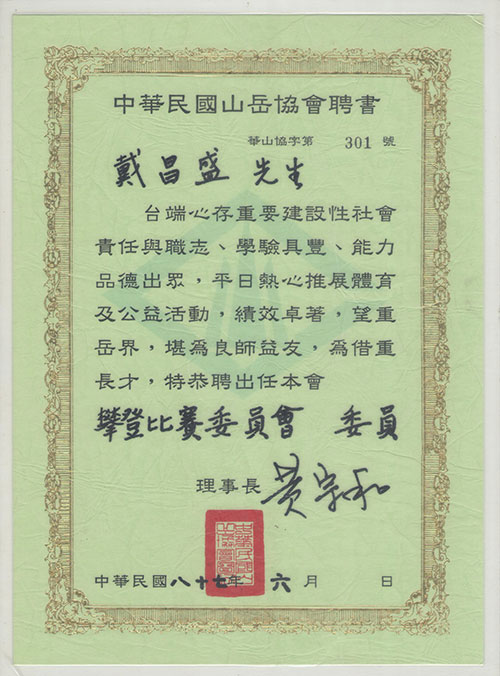 中華民國山岳協會聘書
華山協字第 301 號
戴昌盛 先生
台端心存重要建設性社會
責任與職志、學驗具豐、能力
品德出眾，平日熱心推展體育
及公益活動，績效卓著，望重
岳界，堪為良師益友，為借重
長才，特恭聘出任本會
攀登比賽委員會 委員
理事長 黃宗和
中華民國八十七年 六 月 日